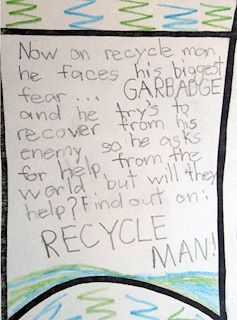 Now on recycle man
he faces his biggest
fear ... GARBADGE
and he try's to
recover from his
enemy so he asks
for help from the
world but will they
help? Find out on:
RECYCLE
MAN!